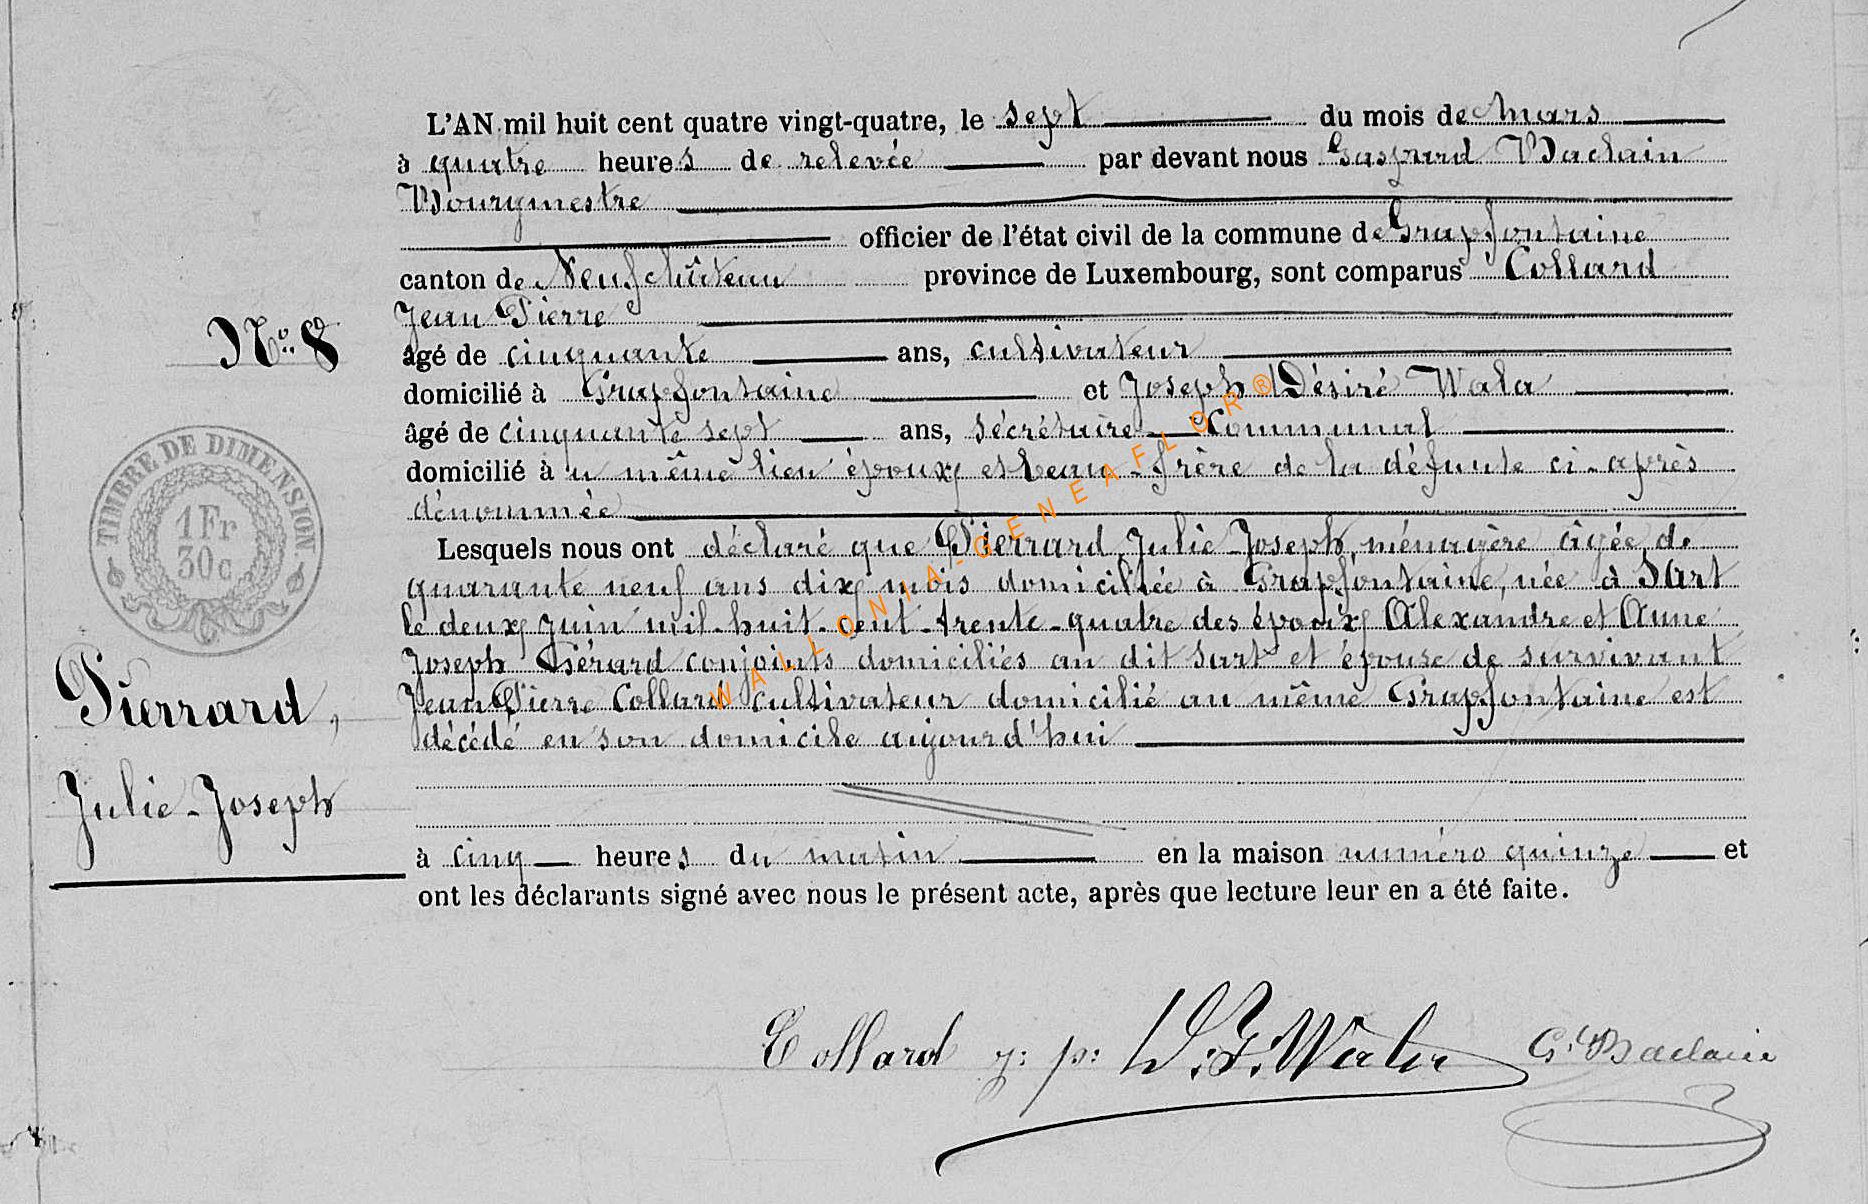 L'AN mil huit cent quatre vingt-quatre, le sept du mois de Mars
à quatre heures de relevée par devant nous Gaspard Baclain
Bourgmestre
officier de l'état civil de la commune de Grapfontaine
canton de Neufchâteau province de Luxembourg, sont comparus Collard
Jean Pierre
No. 8
âgé de cinquante ans, cultivateur
domicilié à Grapfontaine et Joseph Désiré Wala
âgé de cinquante sept ans, sécrétaire Communal
domicilié à u même lieu époux et beau-frère de la défunte ci-après
dénommée
TIMBRE DE DIMENSION
1Fr
30c
Lesquels nous ont déclaré que Pierrard Julie-Joseph, ménagère âgée de
quarante neuf ans dix mois domiciliée à Grapfontaine, née à Sart
le deux Juin mil-huit-cent-trente-quatre des époux Alexandre et Anne
Joseph Gérard conjoints domiciliés au dit Sart et épouse de survivant
Jean Pierre Collard cultivateur domicilié au même Grapfontaine est
décédé en son domicile aujourd'hui
Pierrard,
Julie-Joseph
à cinq heures du matin en la maison numéro quinze et
ont les déclarants signé avec nous le présent acte, après que lecture leur en a été faite.
Collard j: p: D.J. Wala G. Baclain
WALLONIA-GENEAFLOR®